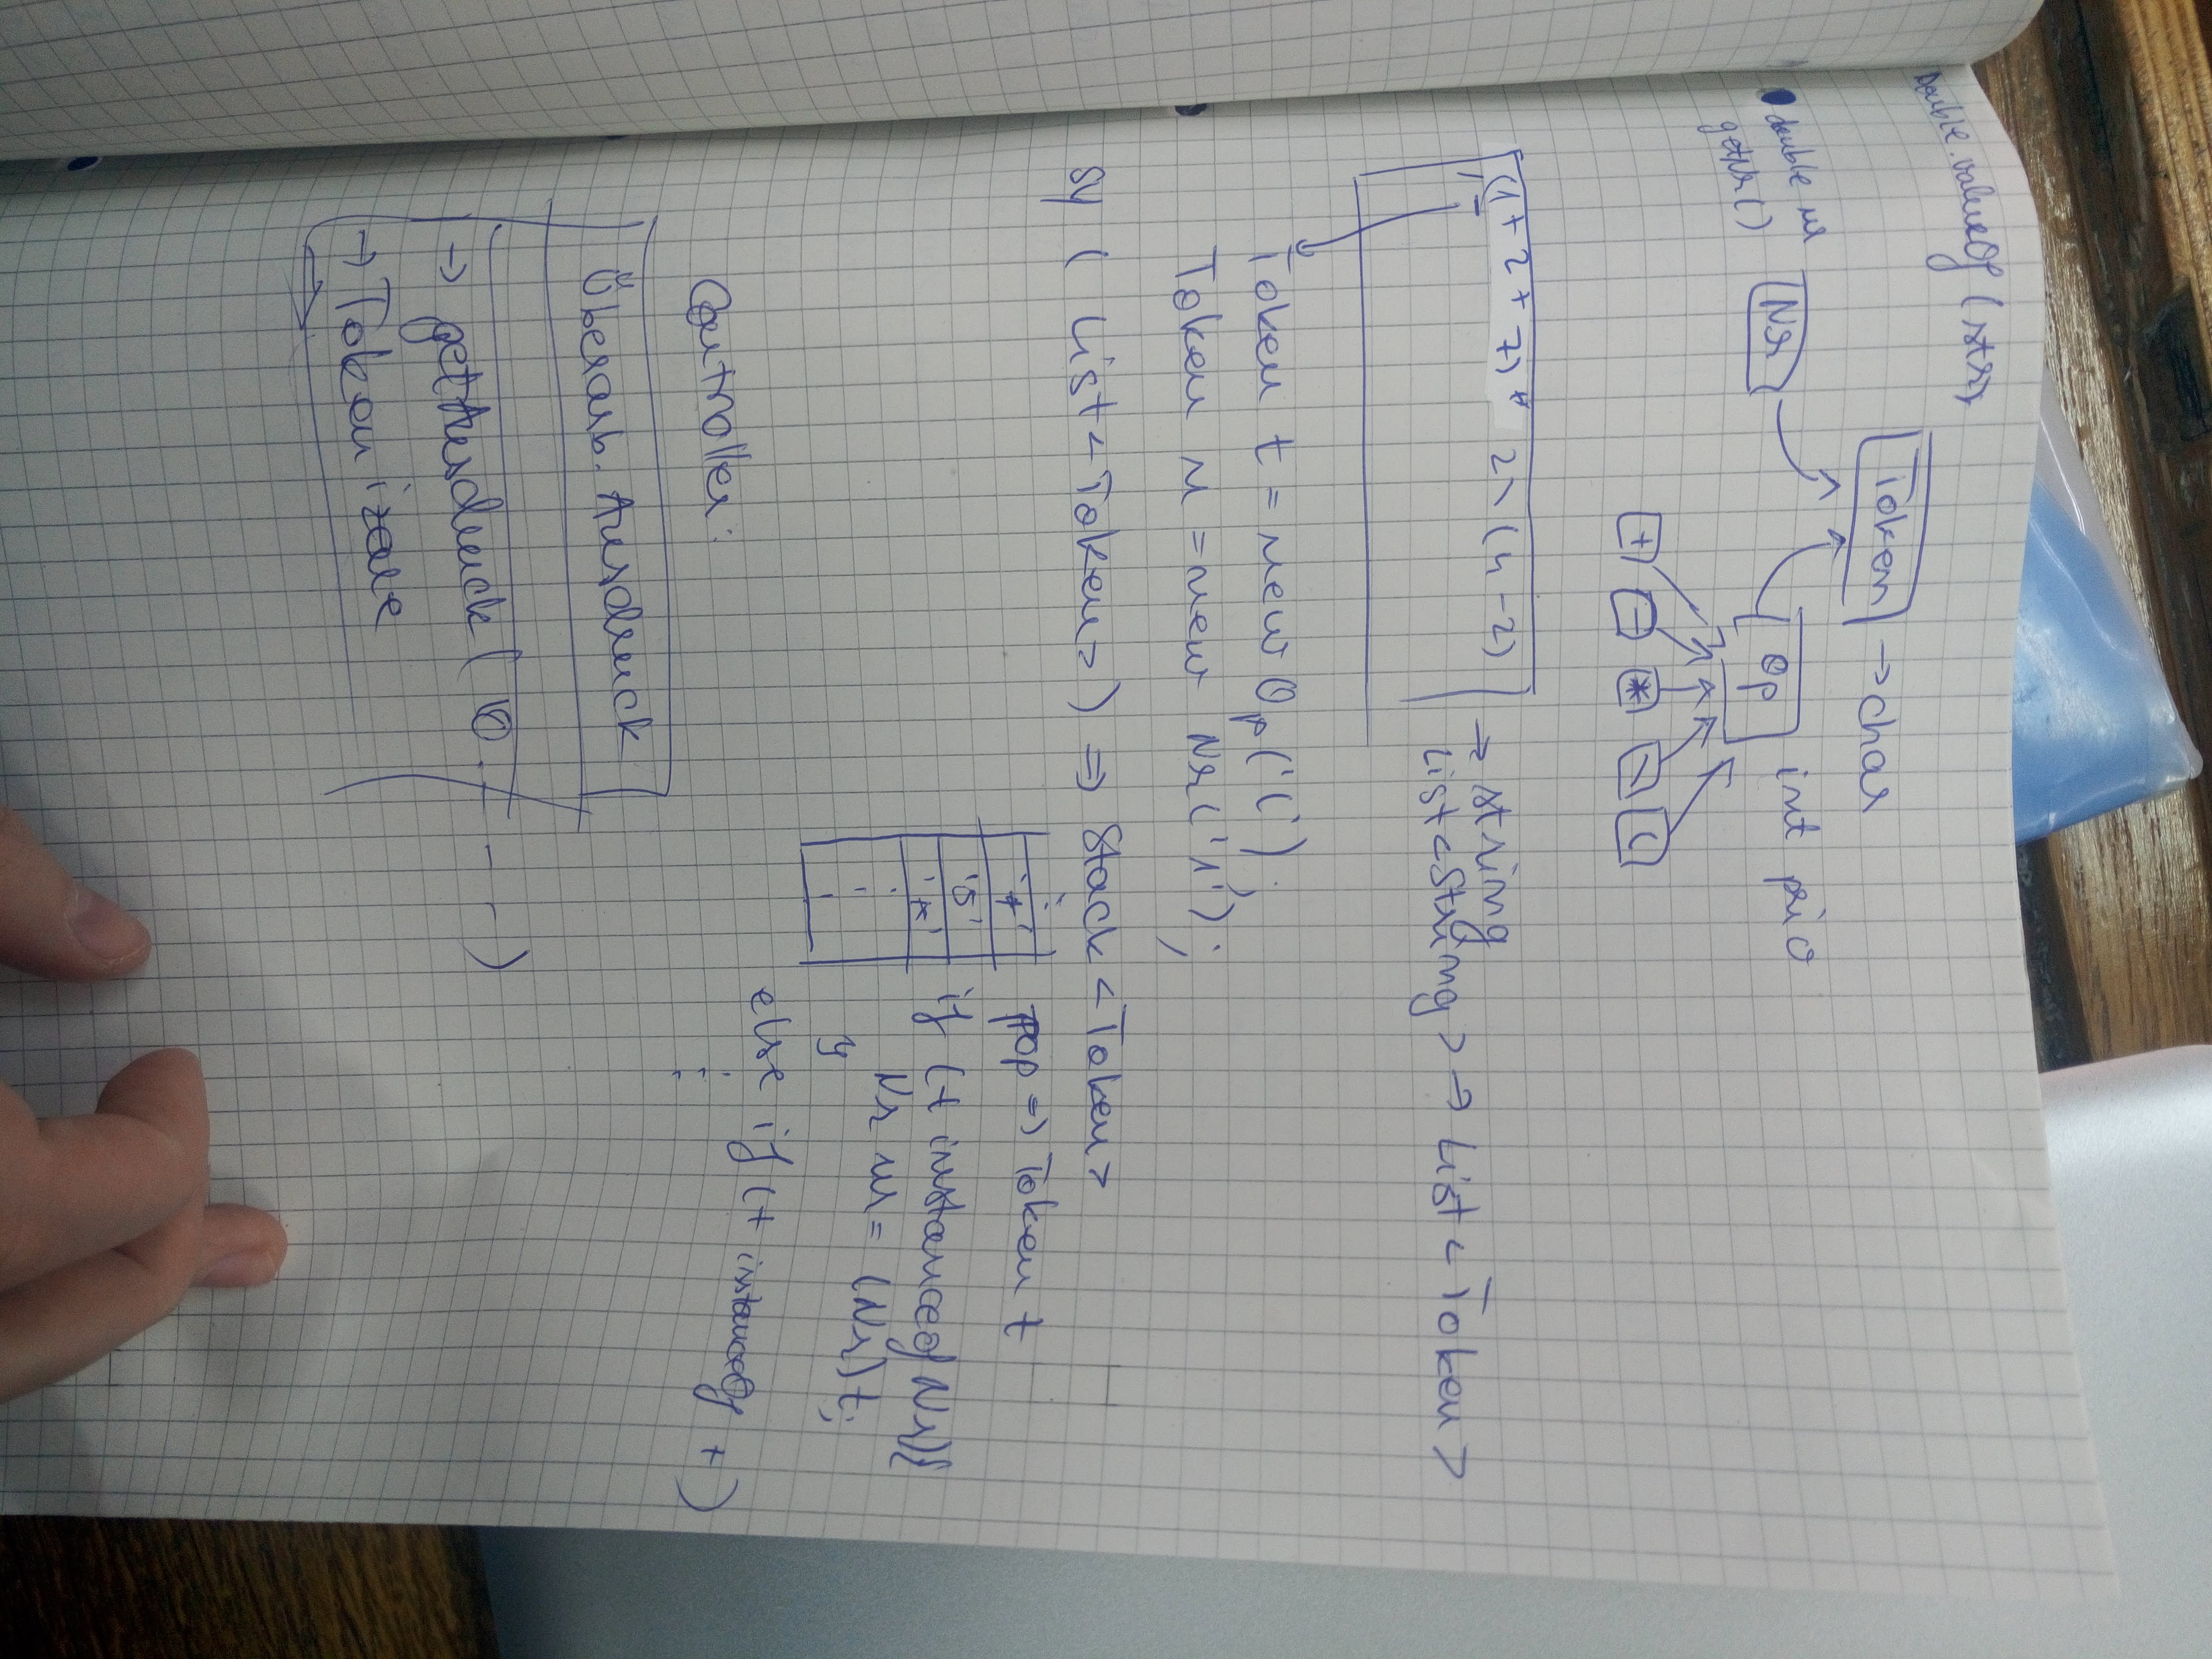 Double.valueOf(str)
Token → char
• double nr
getNr()
Nr
Op
int prio
+ - * \ (
(1+2+7)* 2\(4-2)
→ string
List<String> → List<Token>
Token t = new Op('(');
Token n = new Nr('1');
sy ( List<Token>) ⇒ Stack<Token>
'+'
'5'
'*'
pop ⇒ Token t
if (t instanceof Nr){
Nr nr = (Nr) t;
}
else if (t instanceOf + )
Controller:
Überarb. Ausdruck
→ getAusdruck( - - - )
→ Tokenizare